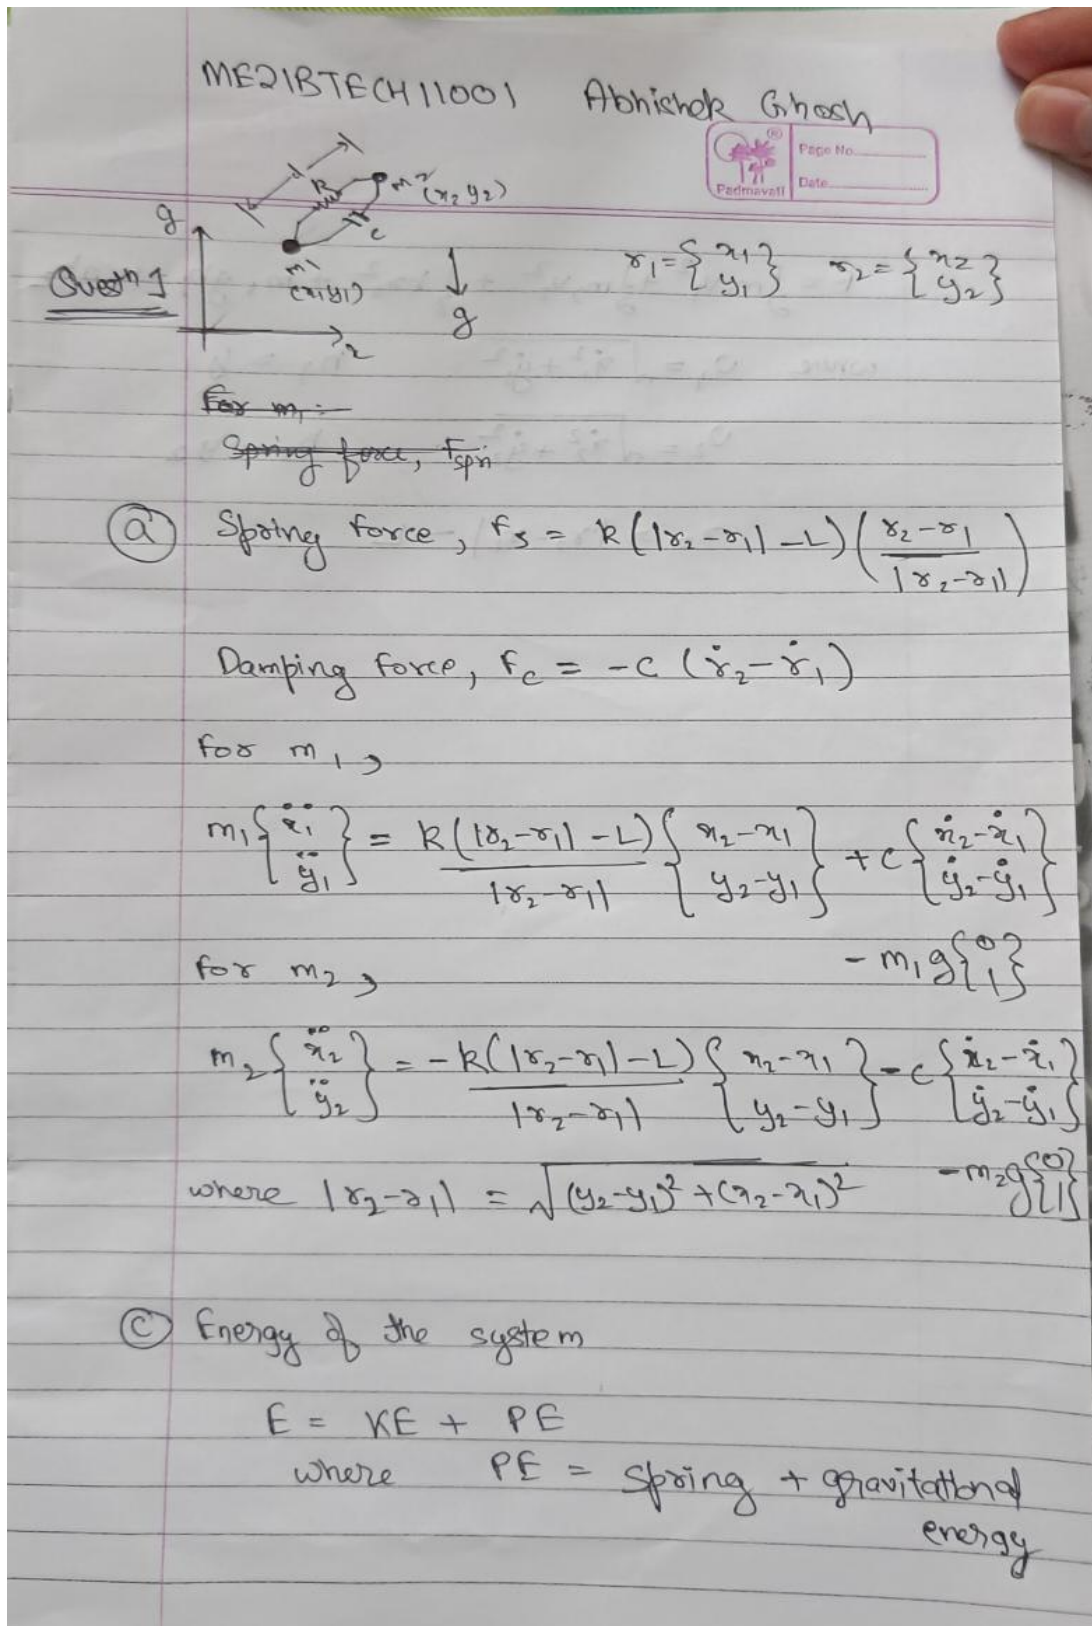 ME21BTECH11001 Abhishek Ghosh
Page No.
Date
Padmavati
d
k
m2
(x2 y2)
c
y
m1
(x1 y1)
g
x
Questn 1
r1 = {x1 y1} r2 = {x2 y2}
For m1 :-
Spring force, Fspri
(a) Spring force, Fs = k(|r2-r1| -L)((r2-r1)/|r2-r1|)
Damping force, Fc = -c (ṙ2-ṙ1)
for m1,
m1{ẍ1 ÿ1} = k(|r2-r1| -L)/|r2-r1| {x2-x1 y2-y1} + c{ẋ2-ẋ1 ẏ2-ẏ1}
- m1g{0 1}
for m2,
m2{ẍ2 ÿ2} = -k(|r2-r1| -L)/|r2-r1| {x2-x1 y2-y1} - c{ẋ2-ẋ1 ẏ2-ẏ1}
- m2g{0 1}
where |r2-r1| = √((y2-y1)² + (x2-x1)²)
(c) Energy of the system
E = KE + PE
where PE = spring + gravitational
energy